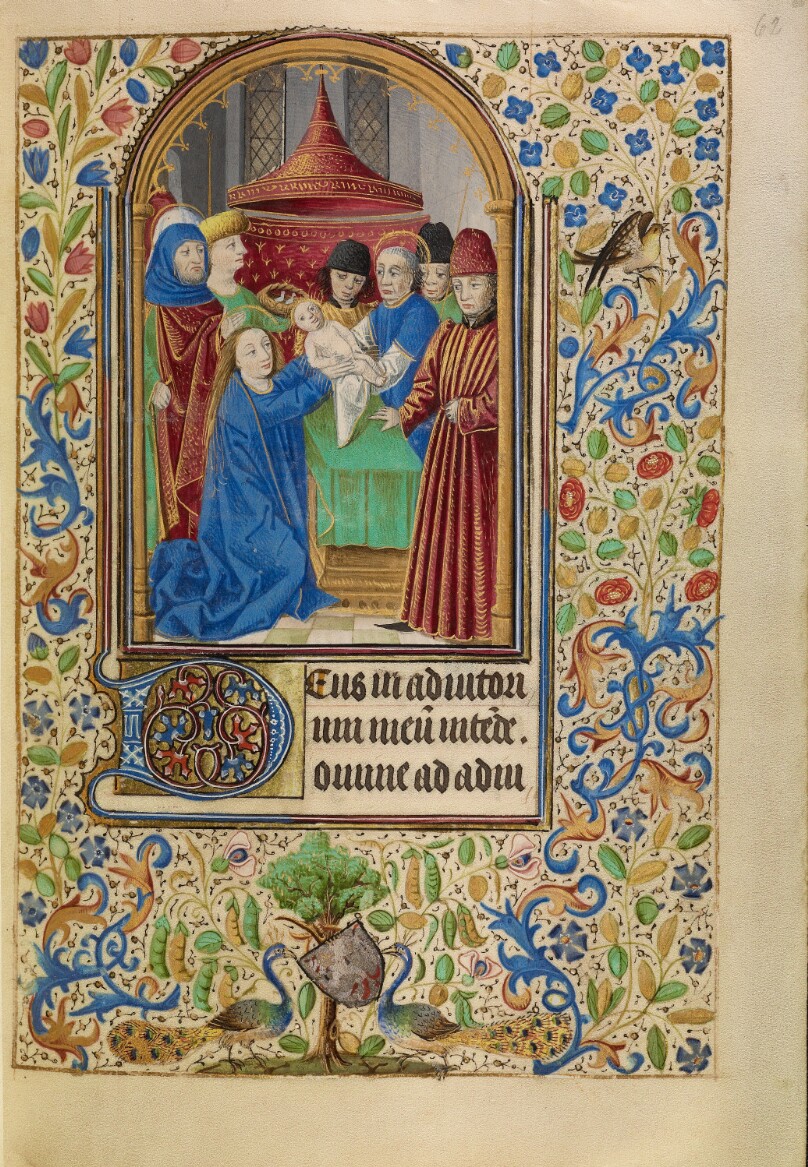 62
Deus in adiutori
um meū intēde.
Domine ad adiu